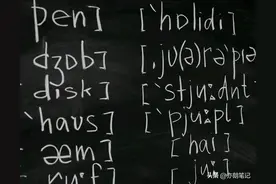 pen] [ˋhɒlidi]
dʒɒb] [ˌjʊ(ə)rəˋpɪə
disk] [ˋstjuːdnt
ˋhaʊs] [ˋpjuːpl]
æm] [hai]
ruːf [juː]
头条 @亦朗笔记